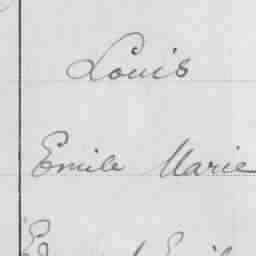 Louis
Emile Marie